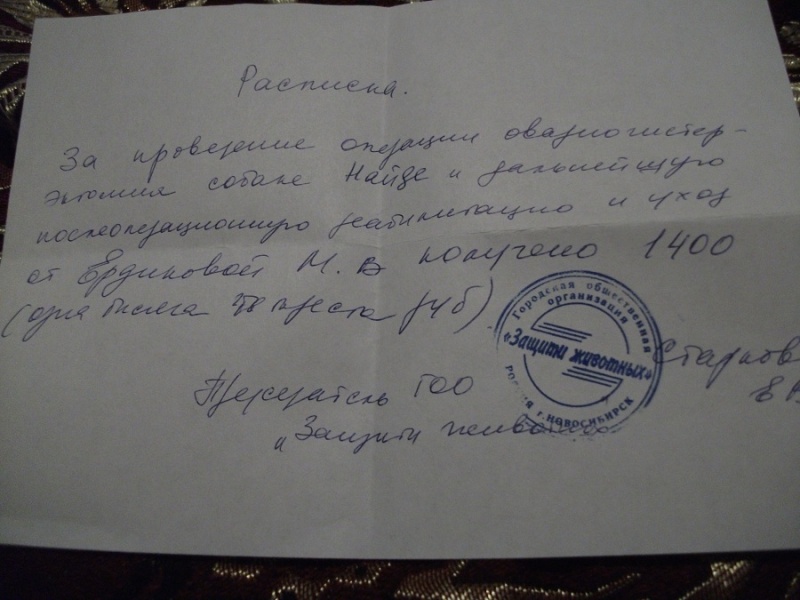 Расписка.
За проведение операции овариогистер-
эктомия собаке Найде и дальнейшую
послеоперационную реабилитацию и уход
от Ердиковой М. В получено 1400
(одна тысяча четыреста руб)
Городская общественная
организация
«Защити животных»
Россия г. НОВОСИБИРСК
Старков
Е В
Председатель ГОО
"Защити животных